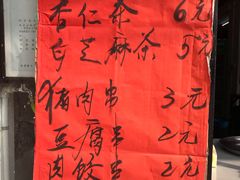 杏仁茶 6元
白芝麻茶 5元
猪肉串 3元
豆腐串 2元
肉饺串 2元